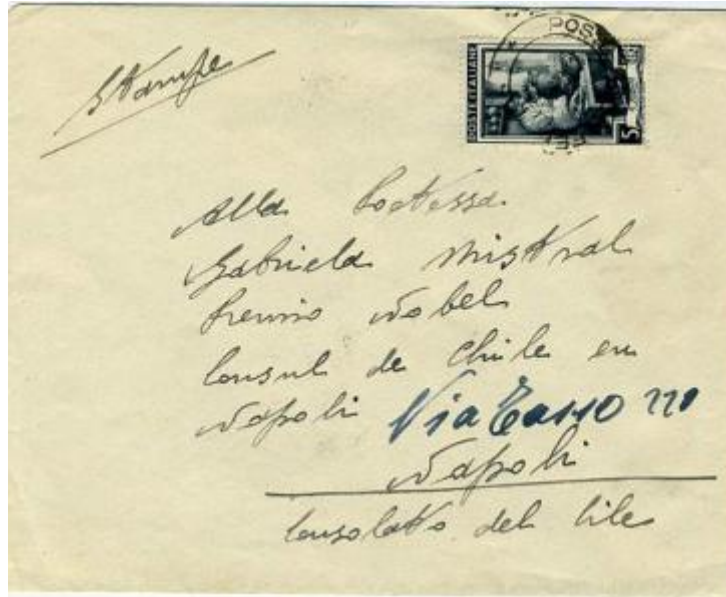 Stampe
POS
POSTE ITALIANE
5
Alla Poetessa
Gabriela Mistral
Premio Nobel
Consul de Chile en
Napoli Via Tasso 220
Napoli
Consolato del Cile